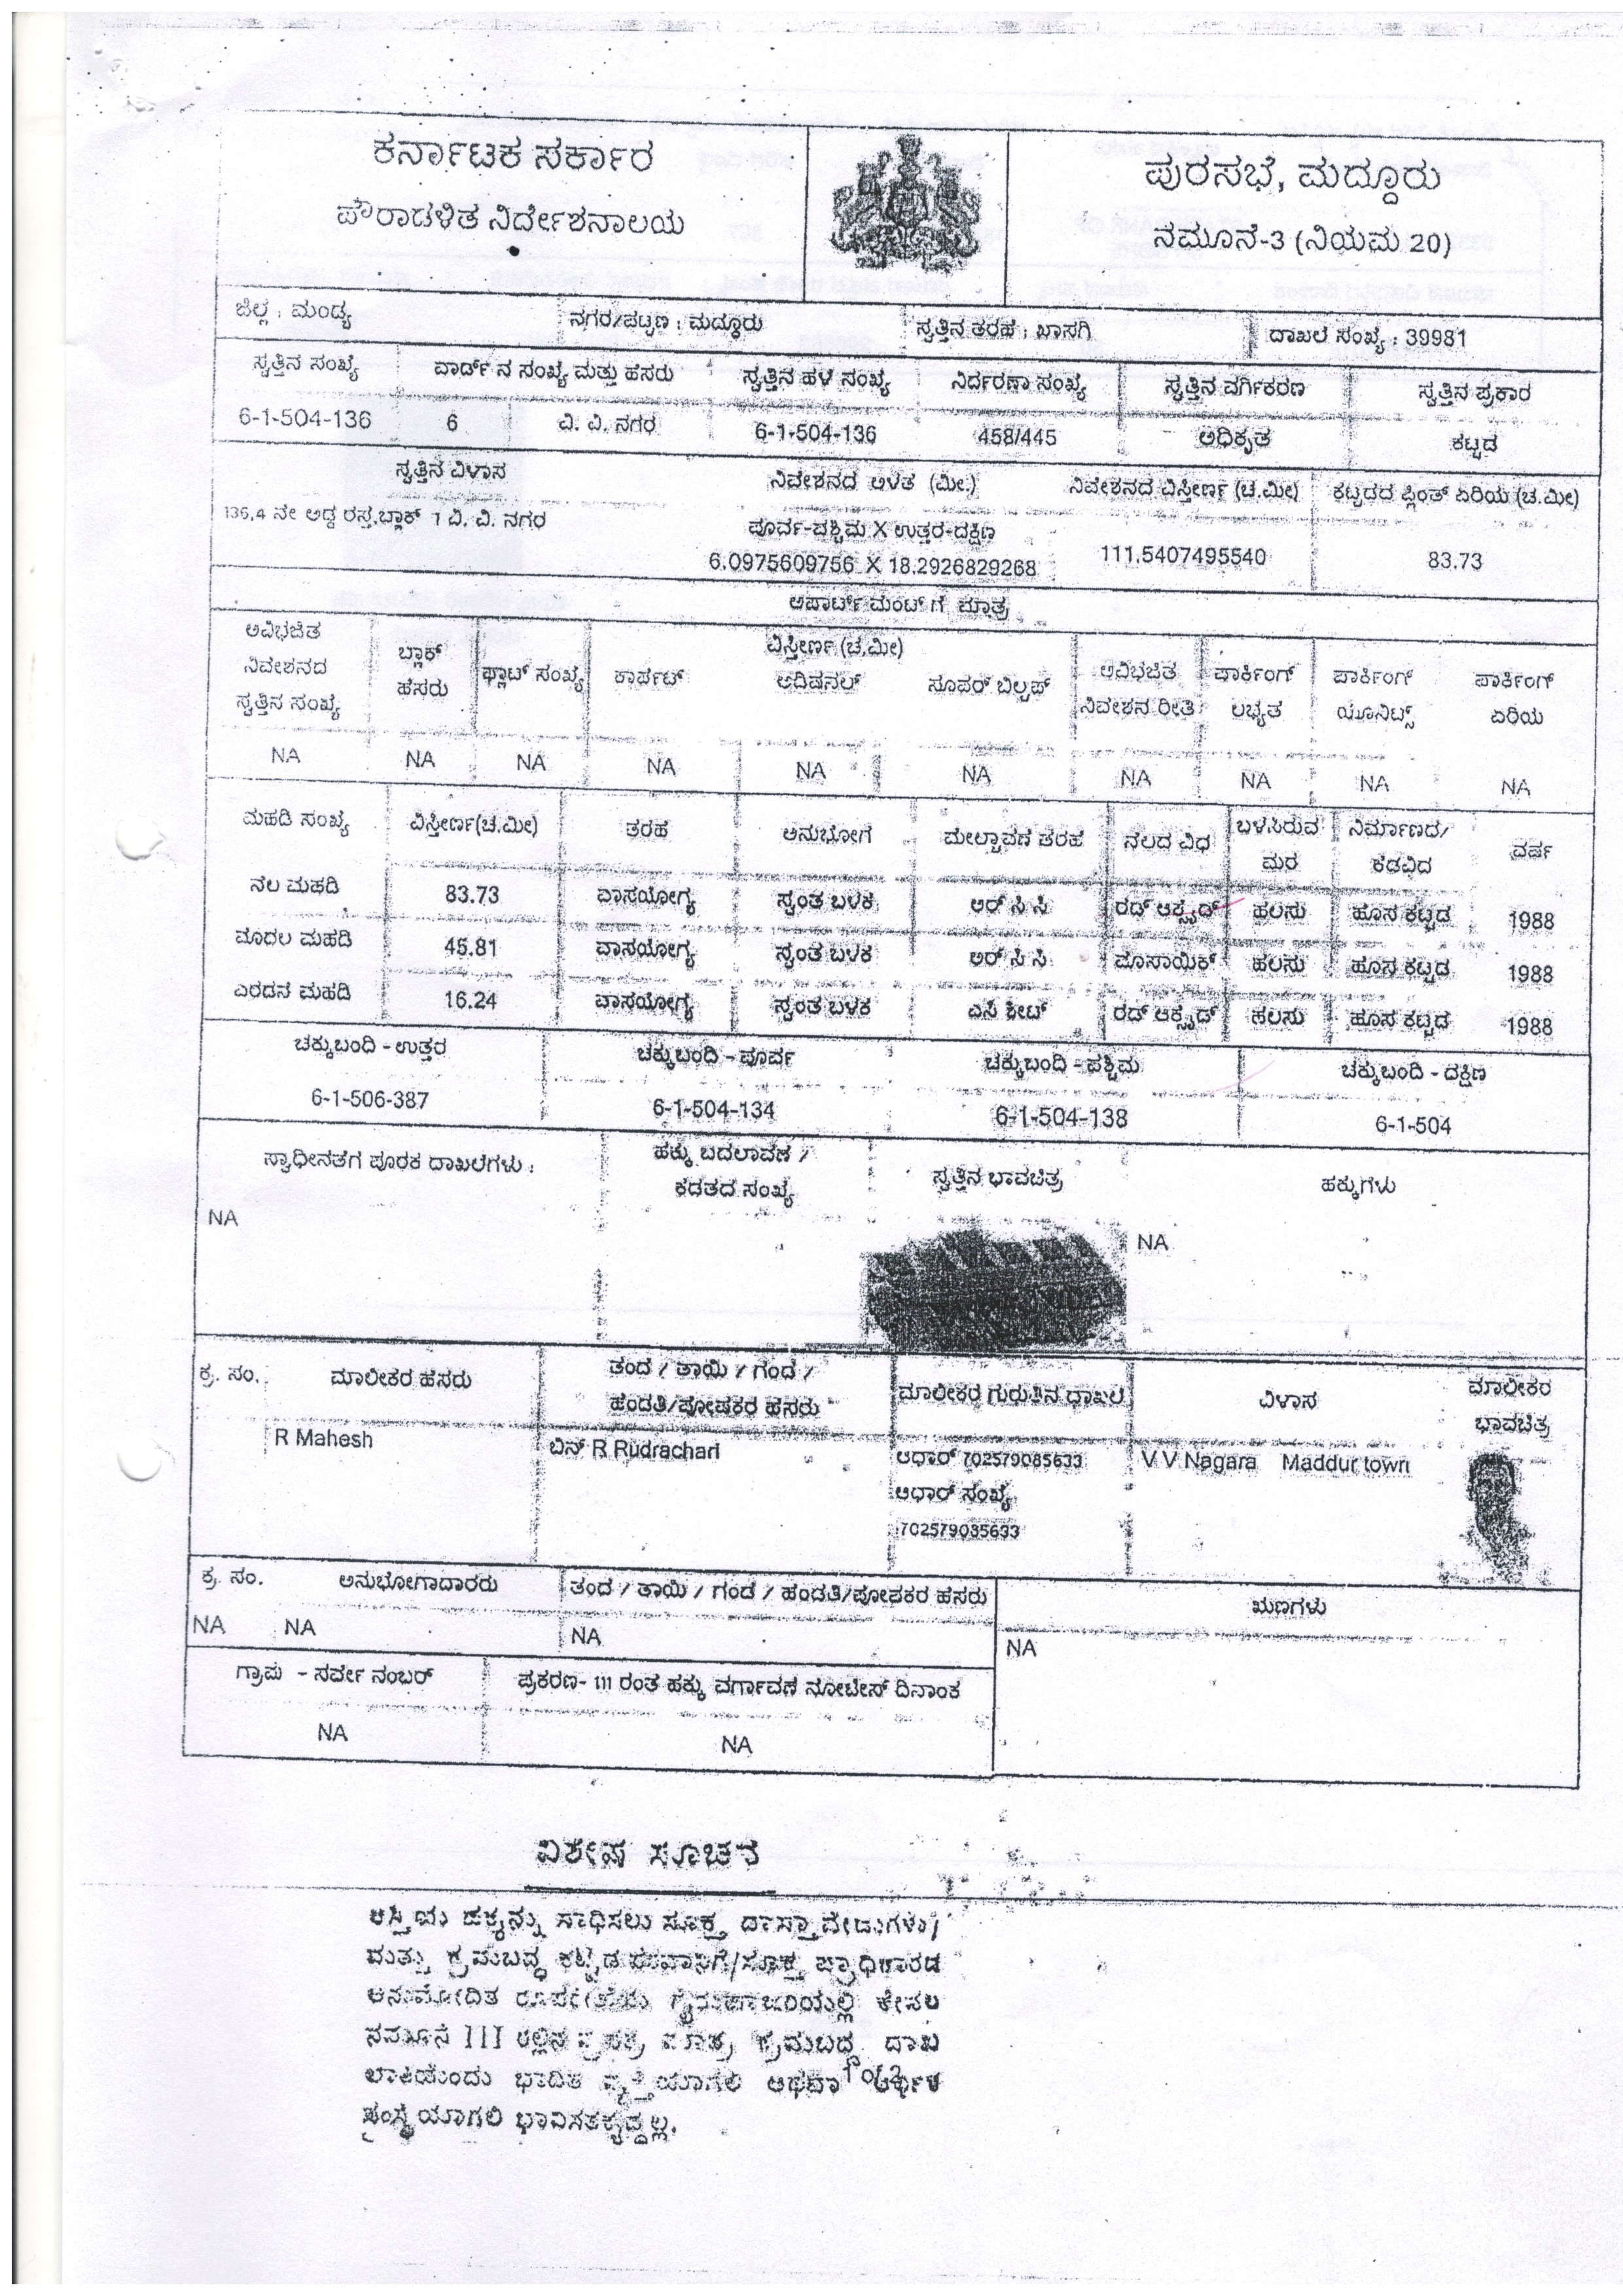 ಕರ್ನಾಟಕ ಸರ್ಕಾರ
ಪೌರಾಡಳಿತ ನಿರ್ದೇಶನಾಲಯ
ಪುರಸಭೆ, ಮದ್ದೂರು
ನಮೂನೆ-3 (ನಿಯಮ 20)
ಜಿಲ್ಲೆ : ಮಂಡ್ಯ ನಗರ/ಪಟ್ಟಣ : ಮದ್ದೂರು ಸ್ವತ್ತಿನ ತರಹ : ಖಾಸಗಿ ದಾಖಲೆ ಸಂಖ್ಯೆ : 39981
ಸ್ವತ್ತಿನ ಸಂಖ್ಯೆ ವಾರ್ಡ್ ನ ಸಂಖ್ಯೆ ಮತ್ತು ಹೆಸರು ಸ್ವತ್ತಿನ ಹಳೆ ಸಂಖ್ಯೆ ನಿರ್ದರಣಾ ಸಂಖ್ಯೆ ಸ್ವತ್ತಿನ ವರ್ಗಿಕರಣ ಸ್ವತ್ತಿನ ಪ್ರಕಾರ
6-1-504-136 6 ವಿ. ವಿ. ನಗರ 6-1-504-136 458/445 ಅಧಿಕೃತ ಕಟ್ಟಡ
ಸ್ವತ್ತಿನ ವಿಳಾಸ ನಿವೇಶನದ ಅಳತೆ (ಮೀ.) ನಿವೇಶನದ ವಿಸ್ತೀರ್ಣ (ಚ.ಮೀ) ಕಟ್ಟಡದ ಪ್ಲಿಂತ್ ಏರಿಯ (ಚ.ಮೀ)
136,4 ನೇ ಅಡ್ಡ ರಸ್ತೆ,ಬ್ಲಾಕ್ 1 ವಿ. ವಿ. ನಗರ
ಪೂರ್ವ-ಪಶ್ಚಿಮ X ಉತ್ತರ-ದಕ್ಷಿಣ
6.0975609756 X 18.2926829268 111.5407495540 83.73
ಅಪಾರ್ಟ್ ಮೆಂಟ್ ಗೆ ಮಾತ್ರ
ಅವಿಭಜಿತ ನಿವೇಶನದ ಸ್ವತ್ತಿನ ಸಂಖ್ಯೆ ಬ್ಲಾಕ್ ಹೆಸರು ಫ್ಲಾಟ್ ಸಂಖ್ಯೆ ವಿಸ್ತೀರ್ಣ (ಚ.ಮೀ)
ಕಾರ್ಪೆಟ್ ಅಡಿಷನಲ್ ಸೂಪರ್ ಬಿಲ್ಟಪ್ ಅವಿಭಜಿತ ನಿವೇಶನ ರೀತಿ ಪಾರ್ಕಿಂಗ್ ಲಭ್ಯತೆ ಪಾರ್ಕಿಂಗ್ ಯೂನಿಟ್ಸ್ ಪಾರ್ಕಿಂಗ್ ಏರಿಯ
NA NA NA NA NA NA NA NA NA NA
ಮಹಡಿ ಸಂಖ್ಯೆ ವಿಸ್ತೀರ್ಣ(ಚ.ಮೀ) ತರಹ ಅನುಭೋಗ ಮೇಲ್ಚಾವಣಿ ತರಹ ನೆಲದ ವಿಧ ಬಳಸಿರುವ ಮರ ನಿರ್ಮಾಣದ/ ಕೆಡವಿದ ವರ್ಷ
ನೆಲ ಮಹಡಿ 83.73 ವಾಸಯೋಗ್ಯ ಸ್ವಂತ ಬಳಕೆ ಆರ್ ಸಿ ಸಿ ರೆಡ್ ಆಕ್ಸೈಡ್ ಹಲಸು ಹೊಸ ಕಟ್ಟಡ 1988
ಮೊದಲ ಮಹಡಿ 45.81 ವಾಸಯೋಗ್ಯ ಸ್ವಂತ ಬಳಕೆ ಆರ್ ಸಿ ಸಿ ಮೊಸಾಯಿಕ್ ಹಲಸು ಹೊಸ ಕಟ್ಟಡ 1988
ಎರಡನೆ ಮಹಡಿ 16.24 ವಾಸಯೋಗ್ಯ ಸ್ವಂತ ಬಳಕೆ ಎಸಿ ಶೀಟ್ ರೆಡ್ ಆಕ್ಸೈಡ್ ಹಲಸು ಹೊಸ ಕಟ್ಟಡ 1988
ಚಕ್ಕುಬಂದಿ - ಉತ್ತರ ಚಕ್ಕುಬಂದಿ - ಪೂರ್ವ ಚಕ್ಕುಬಂದಿ - ಪಶ್ಚಿಮ ಚಕ್ಕುಬಂದಿ - ದಕ್ಷಿಣ
6-1-506-387 6-1-504-134 6-1-504-138 6-1-504
ಸ್ವಾಧೀನತೆಗೆ ಪೂರಕ ದಾಖಲೆಗಳು : ಹಕ್ಕು ಬದಲಾವಣೆ / ಕಡತದ ಸಂಖ್ಯೆ ಸ್ವತ್ತಿನ ಭಾವಚಿತ್ರ ಹಕ್ಕುಗಳು
NA NA
ಕ್ರ. ಸಂ. ಮಾಲೀಕರ ಹೆಸರು ತಂದೆ / ತಾಯಿ / ಗಂಡ / ಹೆಂಡತಿ/ಪೋಷಕರ ಹೆಸರು ಮಾಲೀಕರ ಗುರುತಿನ ಧಾಖಲೆ ವಿಳಾಸ ಮಾಲೀಕರ ಭಾವಚಿತ್ರ
R Mahesh ಬಿನ್ R Rudrachari ಆಧಾರ್ 702579085633 V V Nagara Maddur town
ಆಧಾರ್ ಸಂಖ್ಯೆ
:702579035633
ಕ್ರ. ಸಂ. ಅನುಭೋಗಾದಾರರು ತಂದೆ / ತಾಯಿ / ಗಂಡ / ಹೆಂಡತಿ/ಪೋಷಕರ ಹೆಸರು ಋಣಗಳು
NA NA NA NA
ಗ್ರಾಮ - ಸರ್ವೇ ನಂಬರ್ ಪ್ರಕರಣ- 111 ರಂತೆ ಹಕ್ಕು ವರ್ಗಾವಣೆ ನೋಟೀಸ್ ದಿನಾಂಕ
NA NA
ವಿಶೇಷ ಸೂಚನೆ
ಆಸ್ತಿಯ ಹಕ್ಕನ್ನು ಸಾಧಿಸಲು ಸೂಕ್ತ ದಾಸ್ತಾವೇಜುಗಳು/
ಮತ್ತು ಕ್ರಮಬದ್ಧ ಕಟ್ಟಡ ಪರವಾನಿಗೆ/ಸೂಕ್ತ ಪ್ರಾಧಿಕಾರದ
ಅನುಮೋದಿತ ಗೈರುಹಾಜರಿಯಲ್ಲಿ ಕೇವಲ
ನಮೂನೆ III ರಲ್ಲಿನ ಮಾತ್ರ ಕ್ರಮಬದ್ಧ ದಾಖ
ಲಾತಿಯೆಂದು ಭಾದಿತ ವ್ಯಕ್ತಿಯಾಗಲಿ ಅಥವಾ ಆರ್ಥಿಕ
ಸಂಸ್ಥೆಯಾಗಲಿ ಭಾವಿಸತಕ್ಕದ್ದಲ್ಲ.